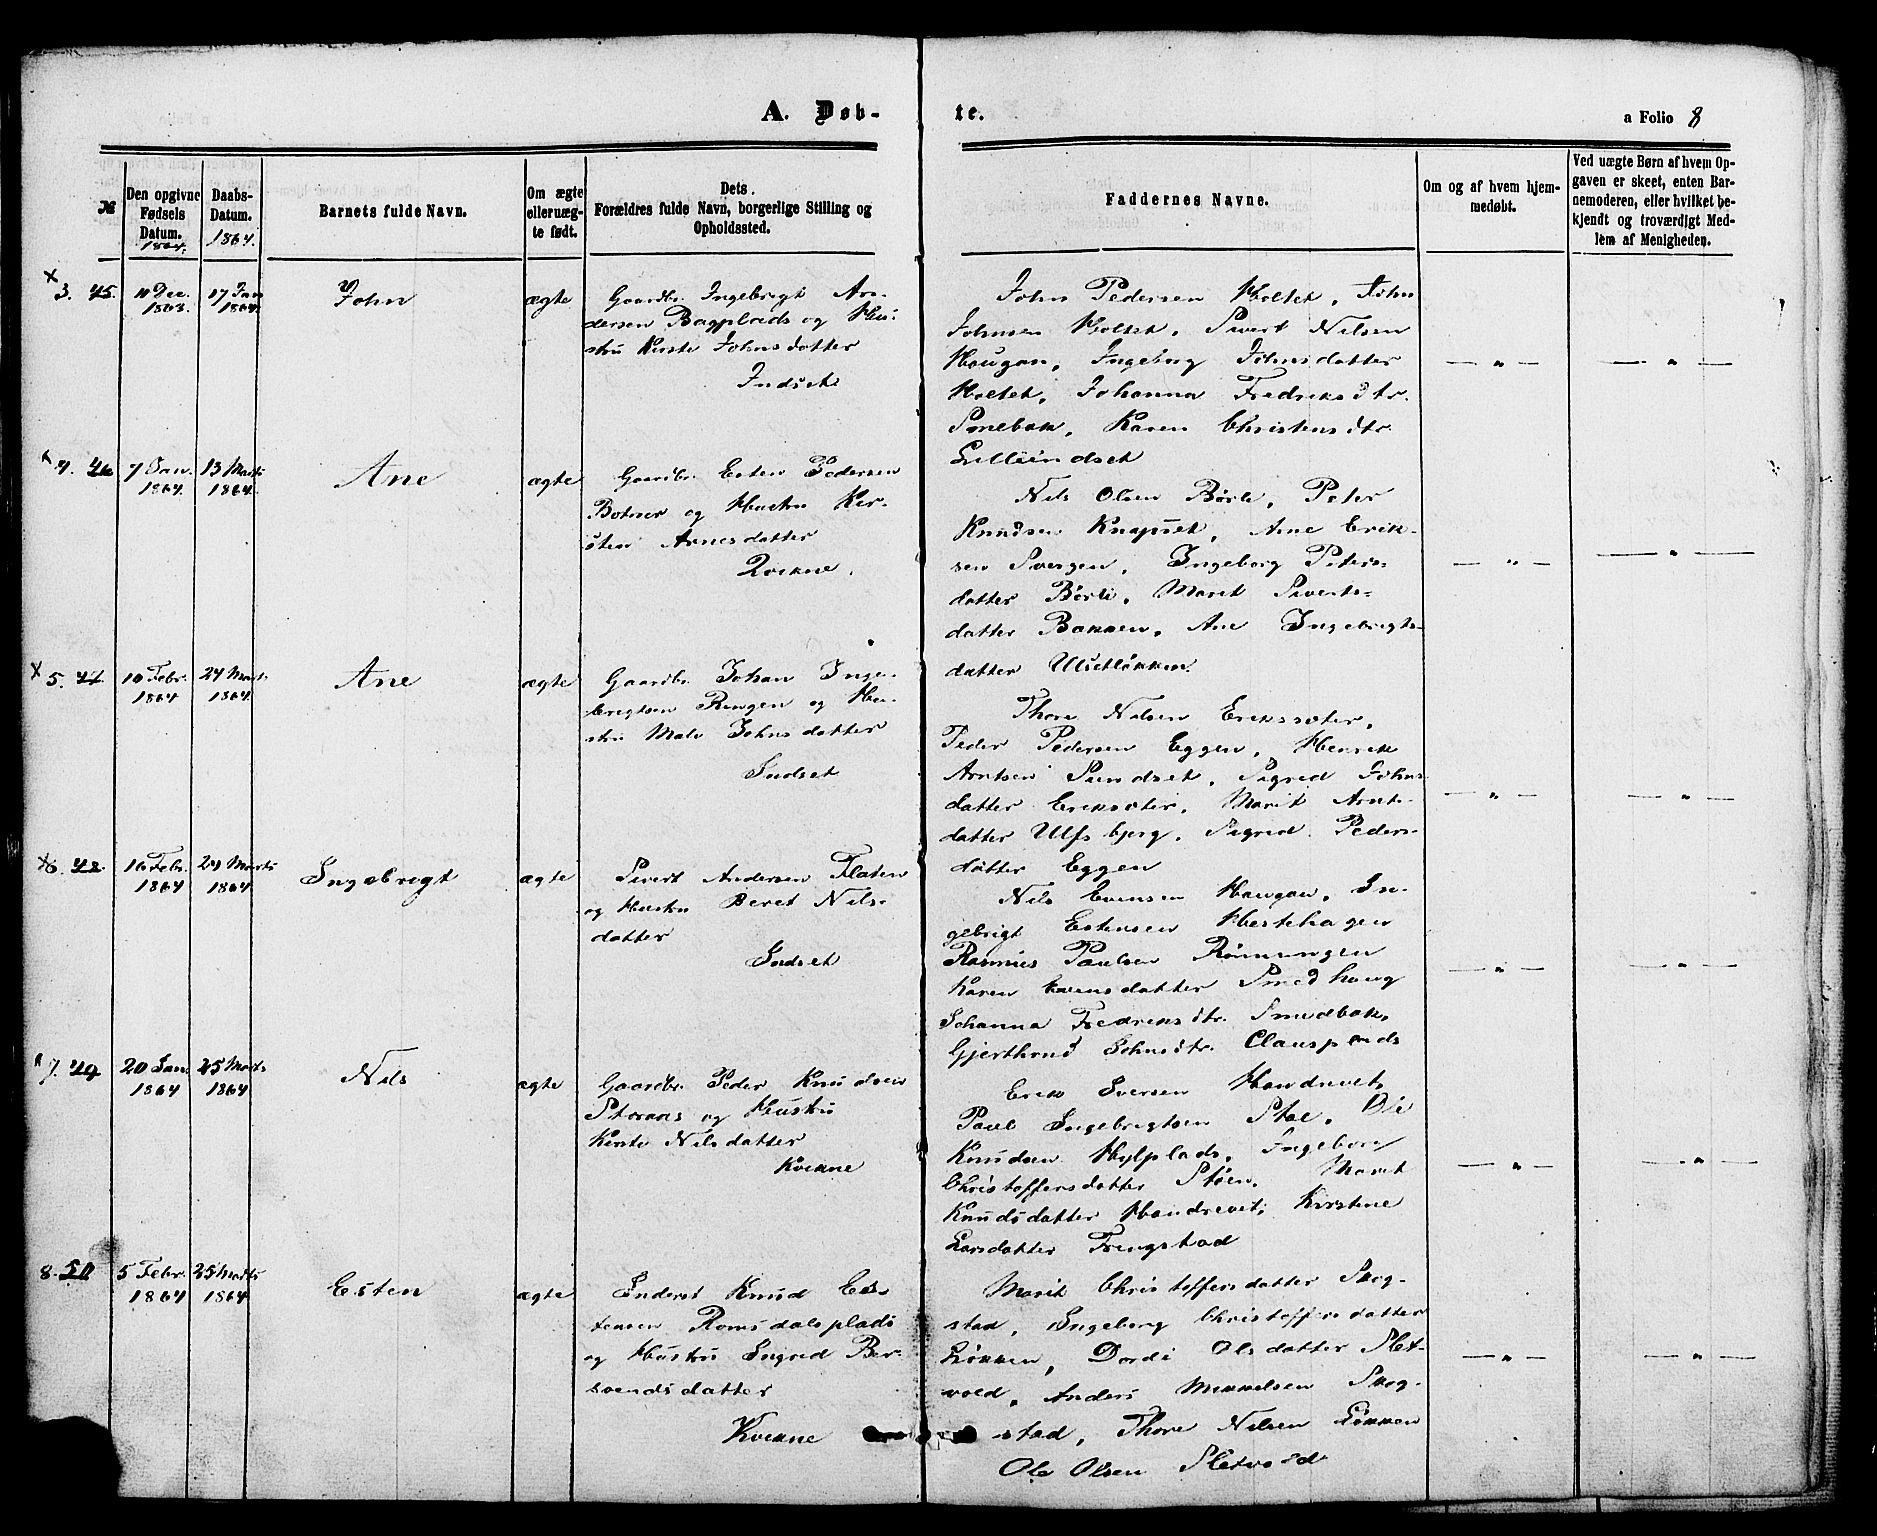 A. Døb-
te.
a Folio 8
№
Den opgivne
Fødsels
Datum.
1864.
Daabs-
Datum.
1864.
Barnets fulde Navn.
Om ægte
eller uæg-
te født.
Dets
Forældres fulde Navn, borgerlige Stilling og
Opholdssted.
Faddernes Navne.
Om og af hvem hjem-
medøbt.
Ved uægte Børn af hvem Op-
gaven er skeet, enten Bar-
nemoderen, eller hvilket be-
kjendt og troværdigt Med-
lem af Menigheden.
x 3. 45.
11 Dec.
1863.
17 Jan
1864.
John
ægte
Gaardbr. Ingebrigt An-
dersen Bagplads og Hu-
stru Kirste Johnsdatter
Indset
John Pedersen Holtet, John
Johnsen Holtet, Sivert Nilsen
Haugan, Ingeborg Johnsdatter
Holtet, Johanna Fredriksdtr.
Smebak, Karen Christensdtr.
Lilleindset
x 4. 46
7 Jan.
1864.
13 Marts
1864.
Ane
ægte
Gaardbr. Esten Pedersen
Botner og Hustru Kir-
sten Arnesdatter
Qvikne.
Nils Olsen Børli, Peter
Knudsen Knapset, Arne Erik-
sen Svergen, Ingeborg Peters-
datter Børli, Marit Siverts-
datter Bakken, Ane Ingebrigts-
datter Ulsetløkken.
x 5. 47
10 Febr.
1864
24 Marts
1864.
Ane
ægte
Gaardbr. Johan Inge-
brigtsen Ringen og Hu-
stru Mali Johnsdatter
Indset
Thore Nilsen Eriksæter,
Peder Pedersen Eggen, Henrik
Arntsen Sundset, Sigrid Johns-
datter Eriksæter, Marit Arnts-
datter Ulfsbjerg, Sigrid Peders-
datter Eggen
x 6. 48
16 Febr.
1864
24 Marts
1864
Ingebrigt
ægte
Sivert Andersen Flaten
og Hustru Beret Nils-
datter
Indset
Nils Evensen Haugan, In-
gebrigt Estensen Hestehagen
Rasmus Paulsen Rønningen
Karen Evensdatter Smedhaug
Johanna Fredriksdtr. Smedbak,
Gjerthrud Johnsdtr. Clausplads
x 7. 49
20 Jan.
1864
25 Marts
1864
Nils
ægte
Gaardbr. Peder Knudsen
og Hustru
Kirsti Nilsdatter
Kvikne
Erik Iversen Haudrevet,
Paul Ingebrigtsen Stai, Ole
Knudsen Hylplads, Ingeborg
Christoffersdatter Støen, Marit
Knudsdatter Haudrevet, Kirstine
Larsdatter Frengstad
8. 50
5 Febr.
1864
25 Marts
1864
Esten
ægte
Inderst Knud Es-
tensen Romsdalsplads
og Hustru Ingrid Ber-
svendsdatter
Kvikne
Marit Christoffersdatter Skog-
stad, Ingeborg Christoffersdatter
Løkken, Dordi Olsdatter Slet-
vold, Anders Mikkelsen Skog-
stad, Thore Nilsen Løkken
Ole Olsen Sletvold